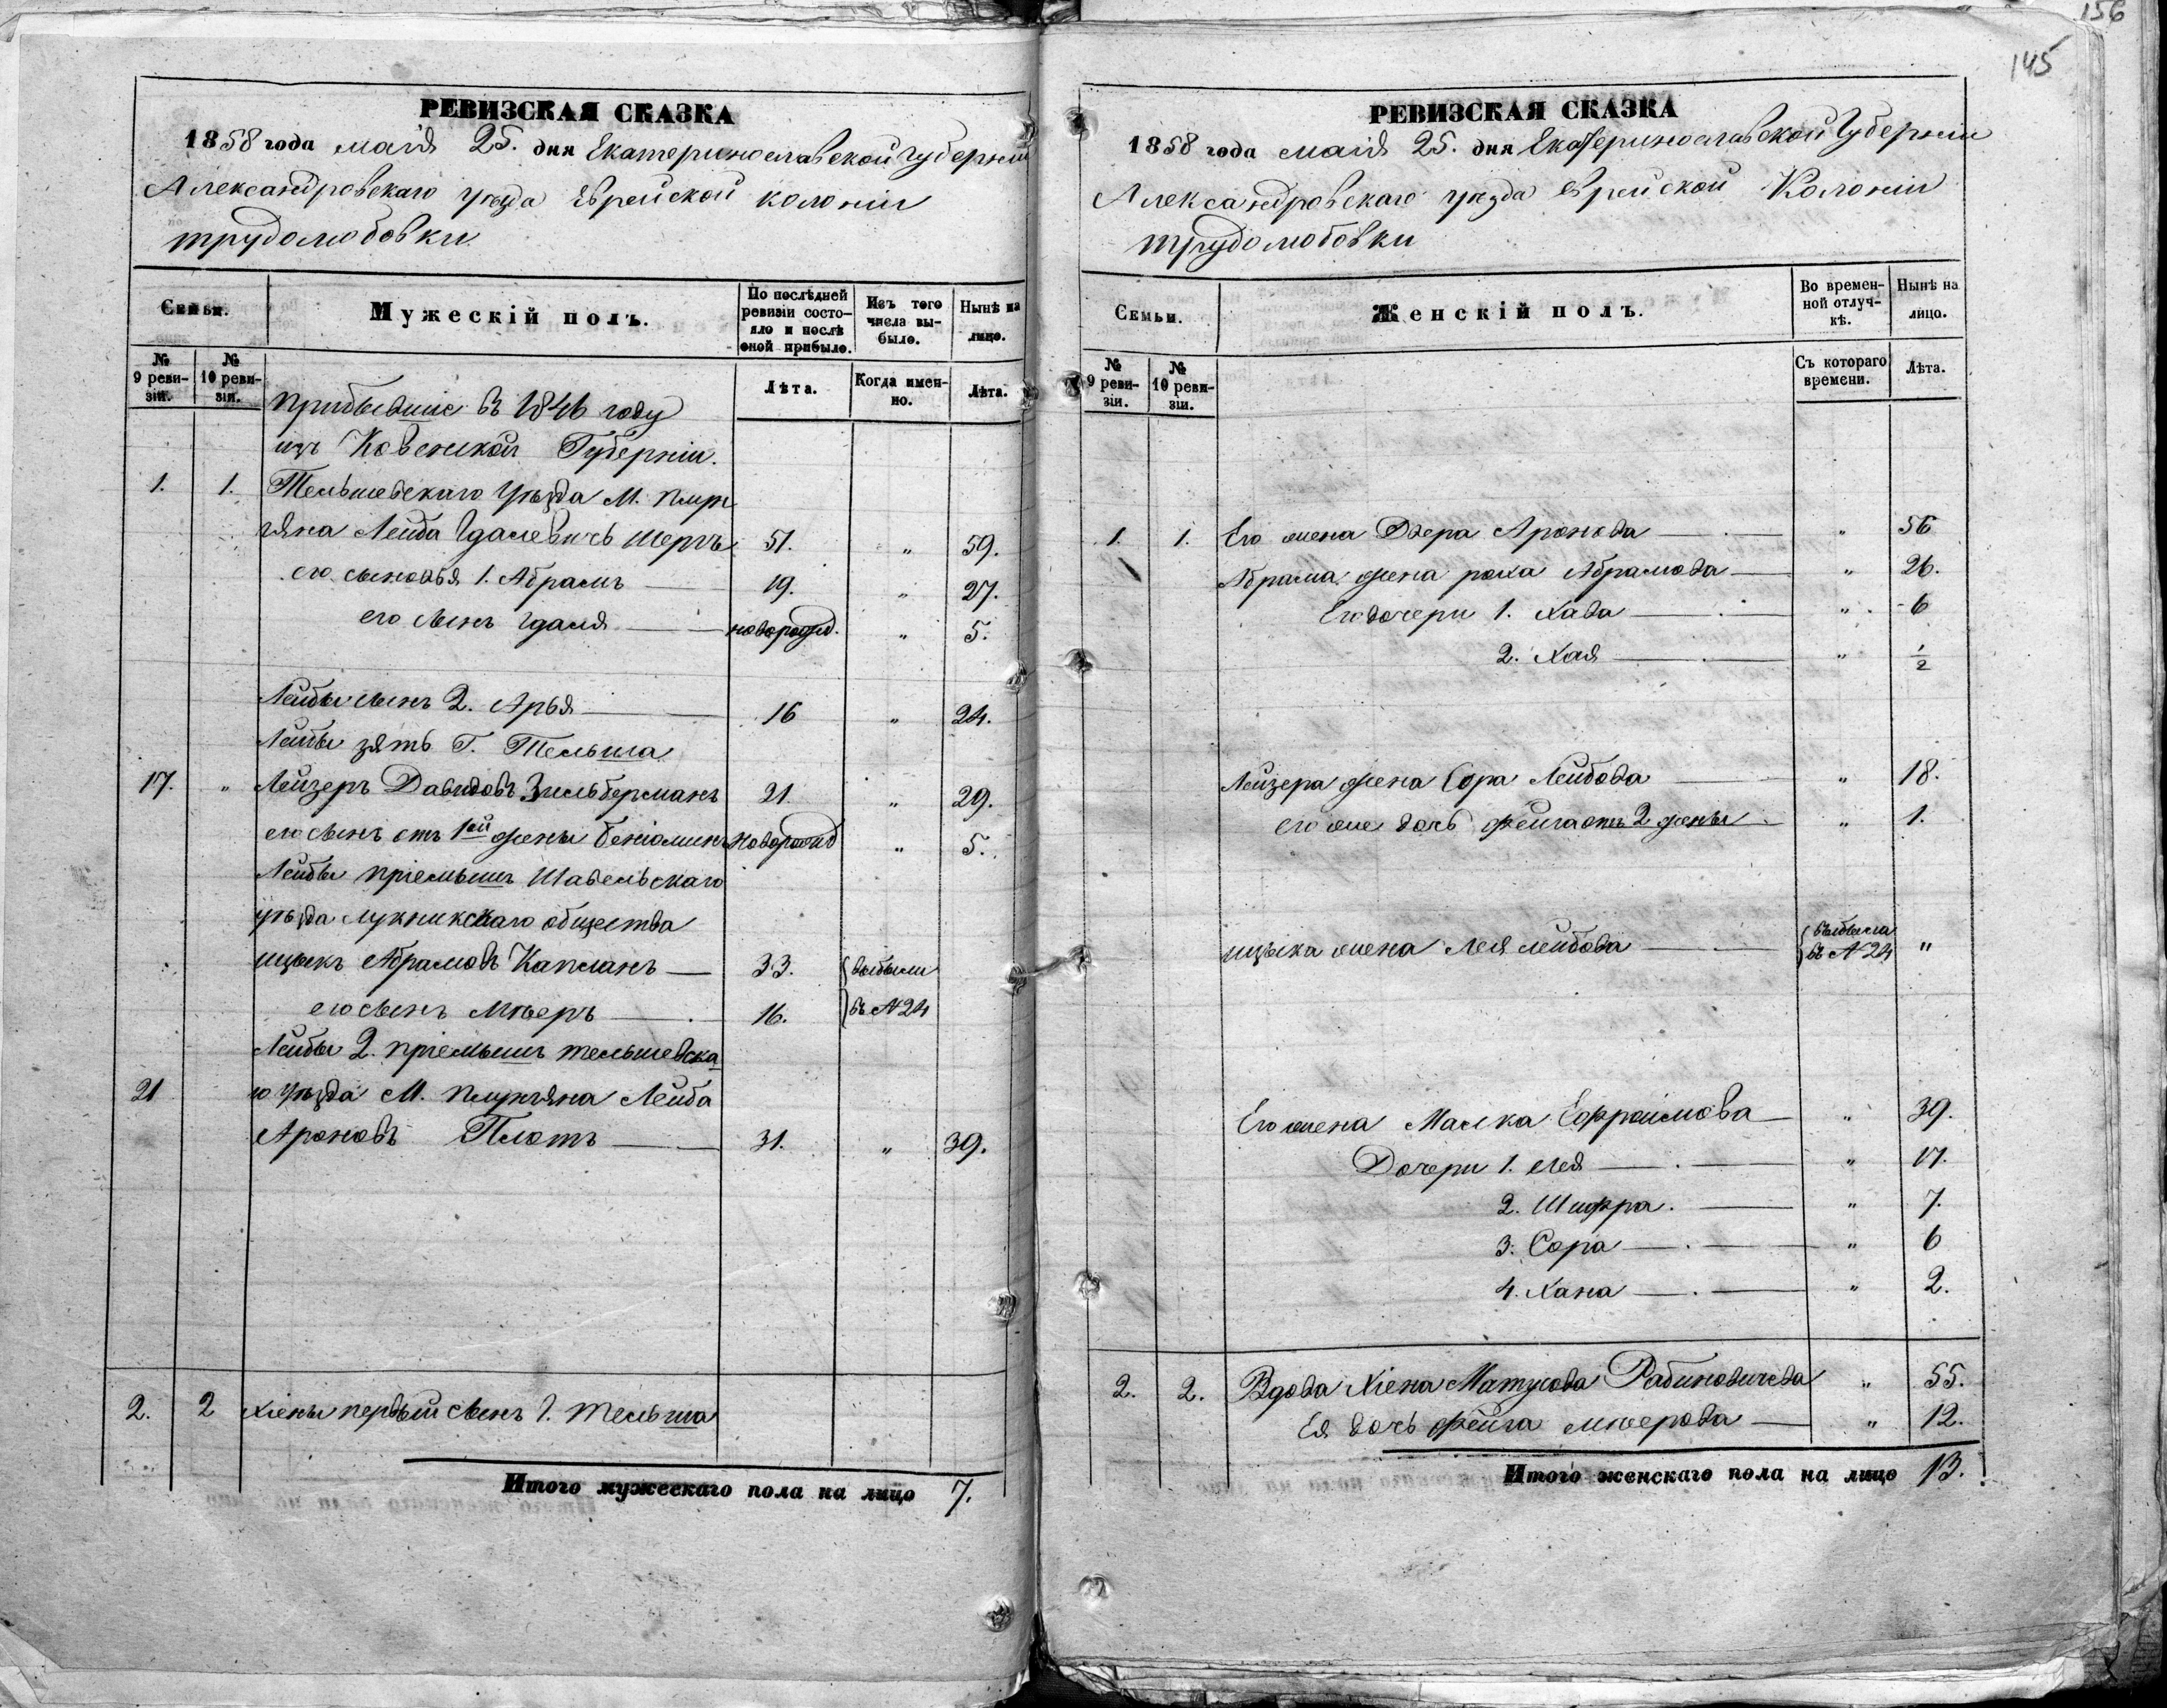 156
145
РЕВИЗСКАЯ СКАЗКА
1858 года маія 25. дня Екатеринославской Губерніи
Александровскаго уѣзда Еврейской колоніи
трудолюбовки
Семьи.
Мужескій полъ.
По послѣдней ревизіи состояло и послѣ оной прибыло.
Изъ того числа выбыло.
Нынѣ на лицо.
№ 9 ревизіи.
№ 10 ревизіи.
Лѣта.
Когда именно.
Лѣта.
прибывшіе въ 1846 году
изъ Ковенской Губерніи.
1. 1. Тельшевскаго Уѣзда М. Плун
гяна Лейба Гдалевичъ Шеръ 51. " 59.
его сыновья 1. Абрамъ 19. " 27.
его сынъ Гдаля новорожд. " 5.
Лейбы сынъ 2. Арья 16 " 24.
Лейбы зять Г. Тельша
17. " Лейзеръ Давидовъ Зильберманъ 21. " 29.
его сынъ отъ 1ой жены Беніоминъ новорожд " 5.
Лейбы пріемышъ Шавельскаго
уѣзда Лукникскаго общества
ицыкъ Абрамовъ Капланъ 33. выбыли
его сынъ Мѣеръ 16. въ № 24
Лейбы 2. пріемышъ тельшевска
21 го Уѣзда М. Плунгяна Лейба
Ароновъ Плотъ 31. " 39.
2. 2 Хіены первый сынъ Г. Тельша
Итого мужескаго пола на лицо 7.
РЕВИЗСКАЯ СКАЗКА
1858 года маія 25. дня Екатеринославской Губерніи
Александровскаго уѣзда еврейской Колоніи
трудолюбовки
Семьи.
Женскій полъ.
Во временной отлучкѣ.
Нынѣ на лицо.
№ 9 ревизіи.
№ 10 ревизіи.
Съ котораго времени.
Лѣта.
1. 1. Его жена Двера Аронова " 56
Абрама жена роха Абрамова " 26.
Его дочери 1. Хава " 6
2. Хая " 1/2
Лейзера жена Сора Лейбова " 18.
его же дочь фейга отъ 2 жены " 1.
ицыка жена Лея лейбова выбыла въ № 24 "
Его жена Малка Ефроимова " 39.
Дочери 1. Лея " 17.
2. Шифра. " 7.
3. Сора " 6
4. Хана " 2.
2. 2. Вдова Хіена Матусова Рабиновичева " 55.
Ея дочь фейга мѣерова " 12.
Итого женскаго пола на лицо 13.